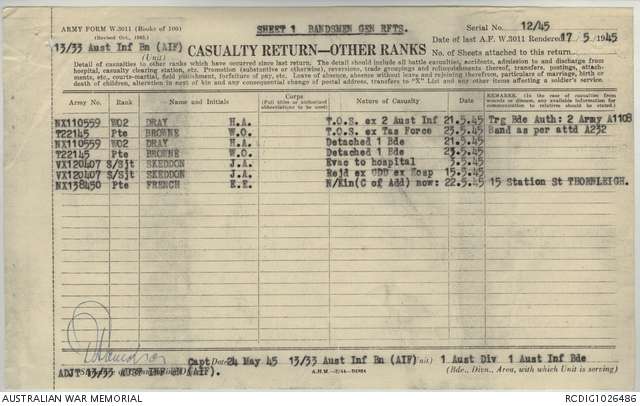 ARMY FORM W.3011 (Books of 100)
(Revised Oct., 1942.)
SHEET 1 BANDSMEN GEN RFTS.
Serial No. 12/45
13/33 Aust Inf Bn (AIF)
(Unit)
CASUALTY RETURN—OTHER RANKS
Date of last A.F. W.3011 Rendered 17/5/1945
No. of Sheets attached to this return
Detail of casualties to other ranks which have occurred since last return. The detail should include all battle casualties, accidents, admission to and discharge from
hospital, casualty clearing station, etc. Promotion (substantive or otherwise), reversions, trade groupings and relinquishments thereof, transfers, postings, attach-
ments, etc., courts-martial, field punishment, forfeiture of pay, etc. Leave of absence, absence without leave and rejoining therefrom, particulars of marriage, birth or
death of children, alteration in next of kin and any consequential change of postal address, transfers to "X" List and any other items affecting a soldier's service.
Army No. Rank Name and Initials Corps (Full titles or authorized abbreviations to be used) Nature of Casualty Date REMARKS. (In the case of casualties from wounds or disease, any available information for communication to relatives should be stated.)
NX110559 WO2 DRAY H.A. T.O.S. ex 2 Aust Inf 21.5.45 Trg Bde Auth: 2 Army A1108
T22145 Pte BROWNE W.O. T.O.S. ex Tas Force 23.5.45 Band as per attd A232
NX110559 WO2 DRAY H.A. Detached 1 Bde 21.5.45
T22145 Pte BROWNE W.O. Detached 1 Bde 23.5.45
VX120407 S/Sjt SKEDDON J.A. Evac to hospital 3.5.45
VX120407 S/Sjt SKEDDON J.A. Rejd ex GDD ex Hosp 15.5.45
NX138450 Pte FRENCH K.E. N/Kin(C of Add) now: 22.5.45 15 Station St THORNLEIGH.
Capt Date 24 May 45 13/33 Aust Inf Bn (AIF) (Unit) 1 Aust Div 1 Aust Inf Bde
ADJT 13/33 AUST INF BN (AIF).
(Bde., Divn., Area, with which Unit is serving)
AUSTRALIAN WAR MEMORIAL
RCDIG1026486